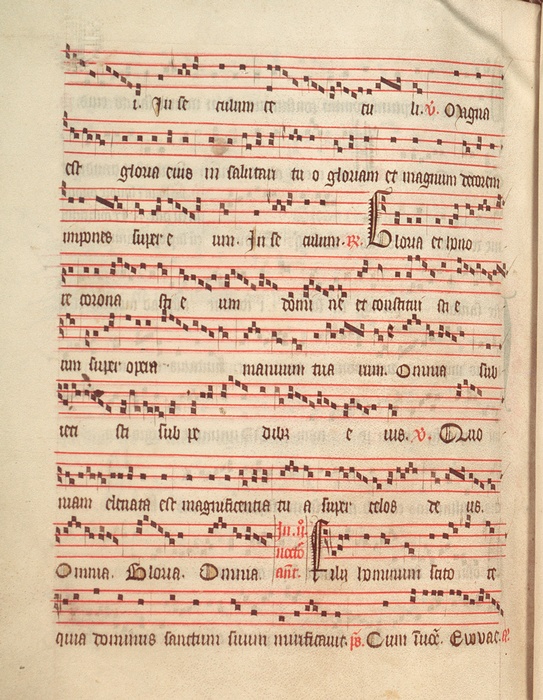 i. In se culum se cu li. V. Magna
est gloria eius in salutari tu o gloriam et magnum decorem
impones super e um. In se culum. R. Gloria et hono
re corona sti e um domi ne et constitu isti e
um super opera manuum tua rum. Omnia sub
ieci sti sub pe dibus e ius. V. Quo
niam eleuata est magnificentia tu a super celos de us.
Omnia. Gloria. Omnia. In ii. nocto ant. Filii hominum scito te
quia dominus sanctum suum mirificauit. ps. Cum inuoc. Evovae.